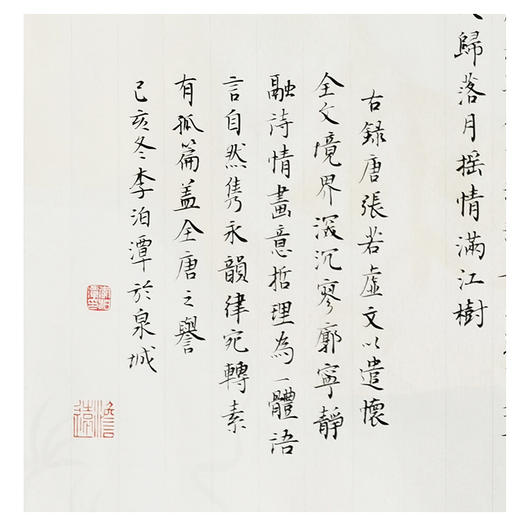 歸落月摇情滿江樹
古錄唐張若虛文以遣懷
全文境界深沉寥廓寧靜
融詩情畫意哲理為一體語
言自然雋永韻律宛轉素
有孤篇盖全唐之譽
己亥冬李泊潭於泉城